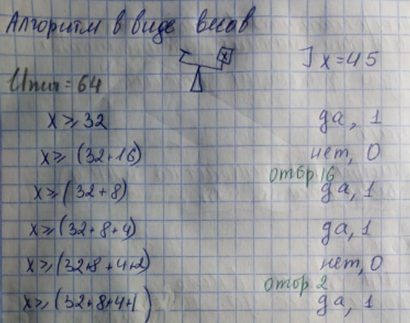 Алгоритм в виде весов
x
] x = 45
Uпит = 64
x ≥ 32 да, 1
x ≥ (32+16) нет, 0
отбр 16
x ≥ (32+8) да, 1
x ≥ (32+8+4) да, 1
x ≥ (32+8+4+2) нет, 0
отбр 2
x ≥ (32+8+4+1) да, 1